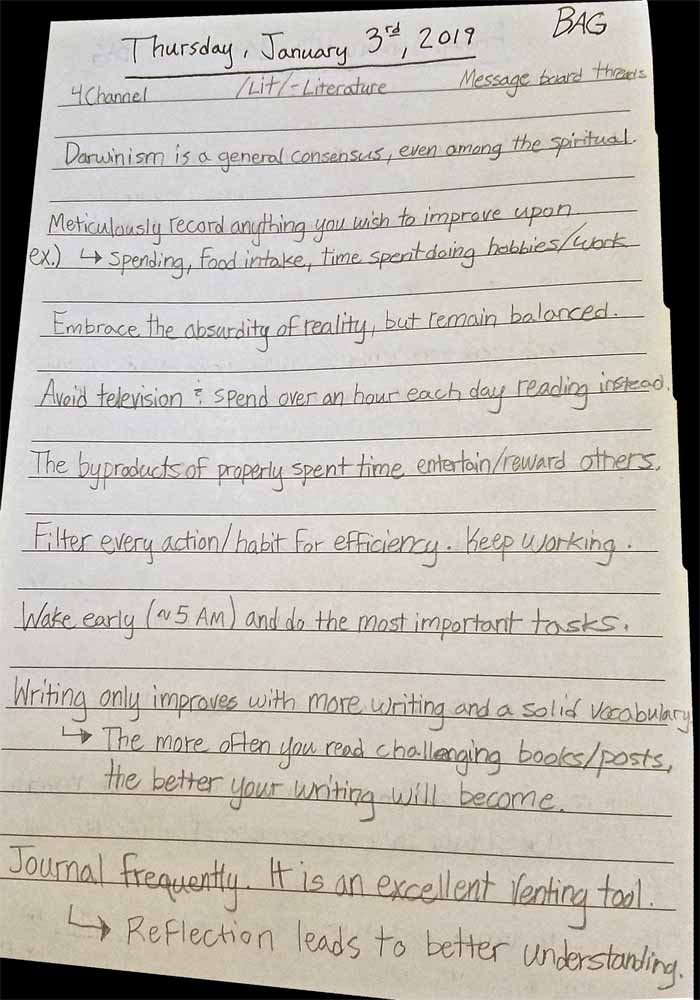 Thursday, January 3rd, 2019 BAG
4Channel /Lit/-Literature Message board threads
Darwinism is a general consensus, even among the spiritual.
Meticulously record anything you wish to improve upon.
ex.) ↳ Spending, food intake, time spent doing hobbies/work
Embrace the absurdity of reality, but remain balanced.
Avoid television & spend over an hour each day reading instead.
The byproducts of properly spent time entertain/reward others.
Filter every action/habit for efficiency. Keep working.
Wake early (~5 AM) and do the most important tasks.
Writing only improves with more writing and a solid vocabulary
↳ The more often you read challenging books/posts,
the better your writing will become.
Journal frequently. It is an excellent venting tool.
↳ Reflection leads to better understanding.